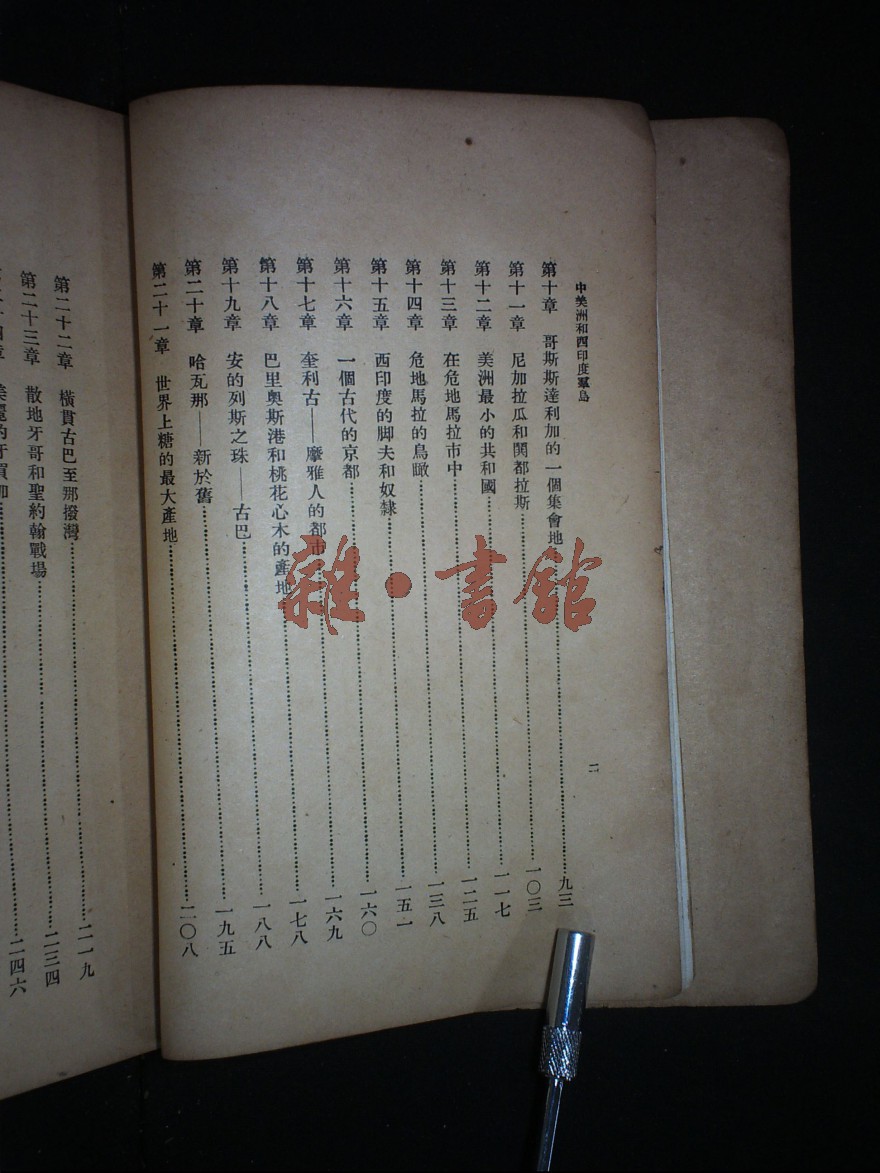 中美洲和西印度羣島
二
第十章 哥斯斯達利加的一個集會地……九三
第十一章 尼加拉瓜和閎都拉斯……一〇三
第十二章 美洲最小的共和國……一一七
第十三章 在危地馬拉市中……一二五
第十四章 危地馬拉的鳥瞰……一三八
第十五章 西印度的脚夫和奴隸……一五一
第十六章 一個古代的京都……一六〇
第十七章 奎利古——摩雅人的都市……一六九
第十八章 巴里奧斯港和桃花心木的產地……一七八
第十九章 安的列斯之珠——古巴……一八八
第二十章 哈瓦那——新於舊……一九五
第二十一章 世界上糖的最大產地……二〇八
第二十二章 橫貫古巴至那撥灣……二一九
第二十三章 散地牙哥和聖約翰戰場……二三四
二四六
雜·書館